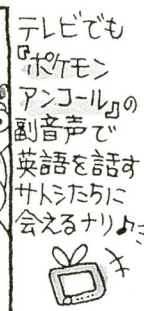 テレビでも
『ポケモン
アンコール』の
副音声で
英語を話す
サトシたちに
会えるナリ♪